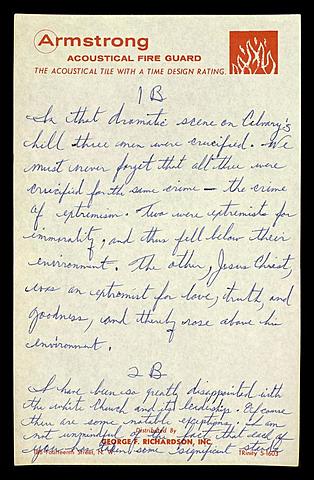 Armstrong
ACOUSTICAL FIRE GUARD
THE ACOUSTICAL TILE WITH A TIME DESIGN RATING.
1 B
In that dramatic scene on Calvary's
hill three men were crucified. We
must never forget that all three were
crucified for the same crime — the crime
of extremism. Two were extremists for
immorality, and thus fell below their
environment. The other, Jesus Christ,
was an extremist for love, truth, and
goodness, and thereby rose above his
environment.
2 B
I have been so greatly disappointed with
the white church and its leadership. Of course
there are some notable exceptions; I am
not unmindful of the fact that each of
you has taken some significant stands
Distributed By
GEORGE F. RICHARDSON, INC.
Fourteenth Street, N. W. TRinity 5-1603